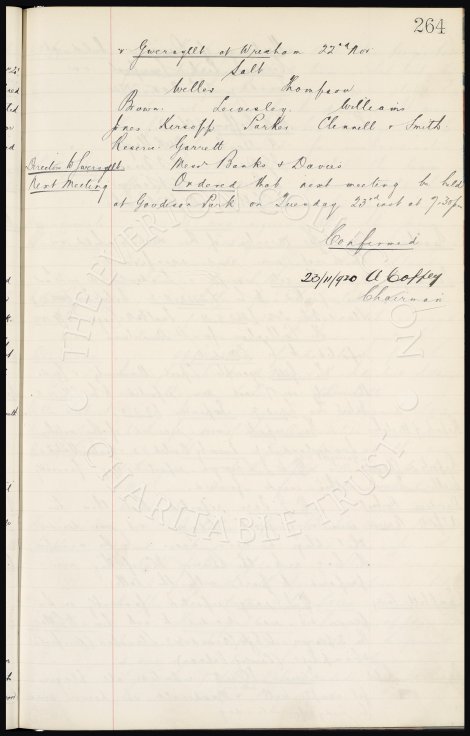 264
v Gwersyllt at Wrexham 22nd Nov
Salt
Welles Thompson
Brown Lewesley Williams
Jones Kersopp Parkes Clennell & Smith
Reserve Garrett
Directors to Gwersyllt Messrs Banks & Davies
Next Meeting Ordered that next meeting be held
at Goodison Park on Tuesday 23rd inst at 7.30pm
Confirmed
23/11/920 W Coffey
Chairman
THE EVERTON COLLECTION
CHARITABLE TRUST